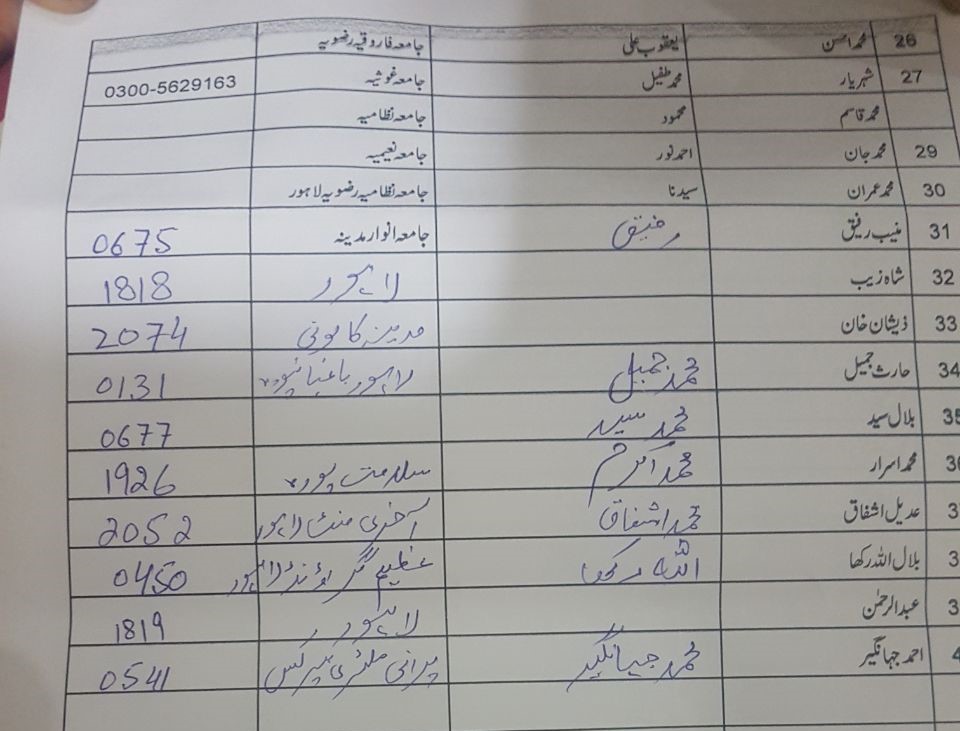 26 محمد احسن یعقوب علی جامعہ فاروقیہ رضویہ
27 شہریار محمد طفیل جامعہ غوثیہ 0300-5629163
محمد قاسم محمود جامعہ نظامیہ
29 محمد جان احمد نور جامعہ نعیمیہ
30 محمد عمران سیدنا جامعہ نظامیہ رضویہ لاہور
31 منیب رفیق رفیق جامعہ انوار مدینہ 0675
32 شاہ زیب لاہور 1818
33 ذیشان خان مدینہ کالونی 2074
34 حارث جمیل محمد جمیل لاہور باغبانپورہ 0131
35 بلال سید محمد سید 0677
3 محمد اسرار محمد اکرم سلامت پورہ 1926
3 عدیل اشفاق محمد اشفاق آخری منٹ لاہور 2052
3 بلال اللہ رکھا اللہ رکھا عظیم گراؤنڈ لاہور 0450
3 عبدالرحمٰن لاہور 1819
4 احمد جہانگیر محمد جہانگیر پرانی ملٹری بیرکس 0541